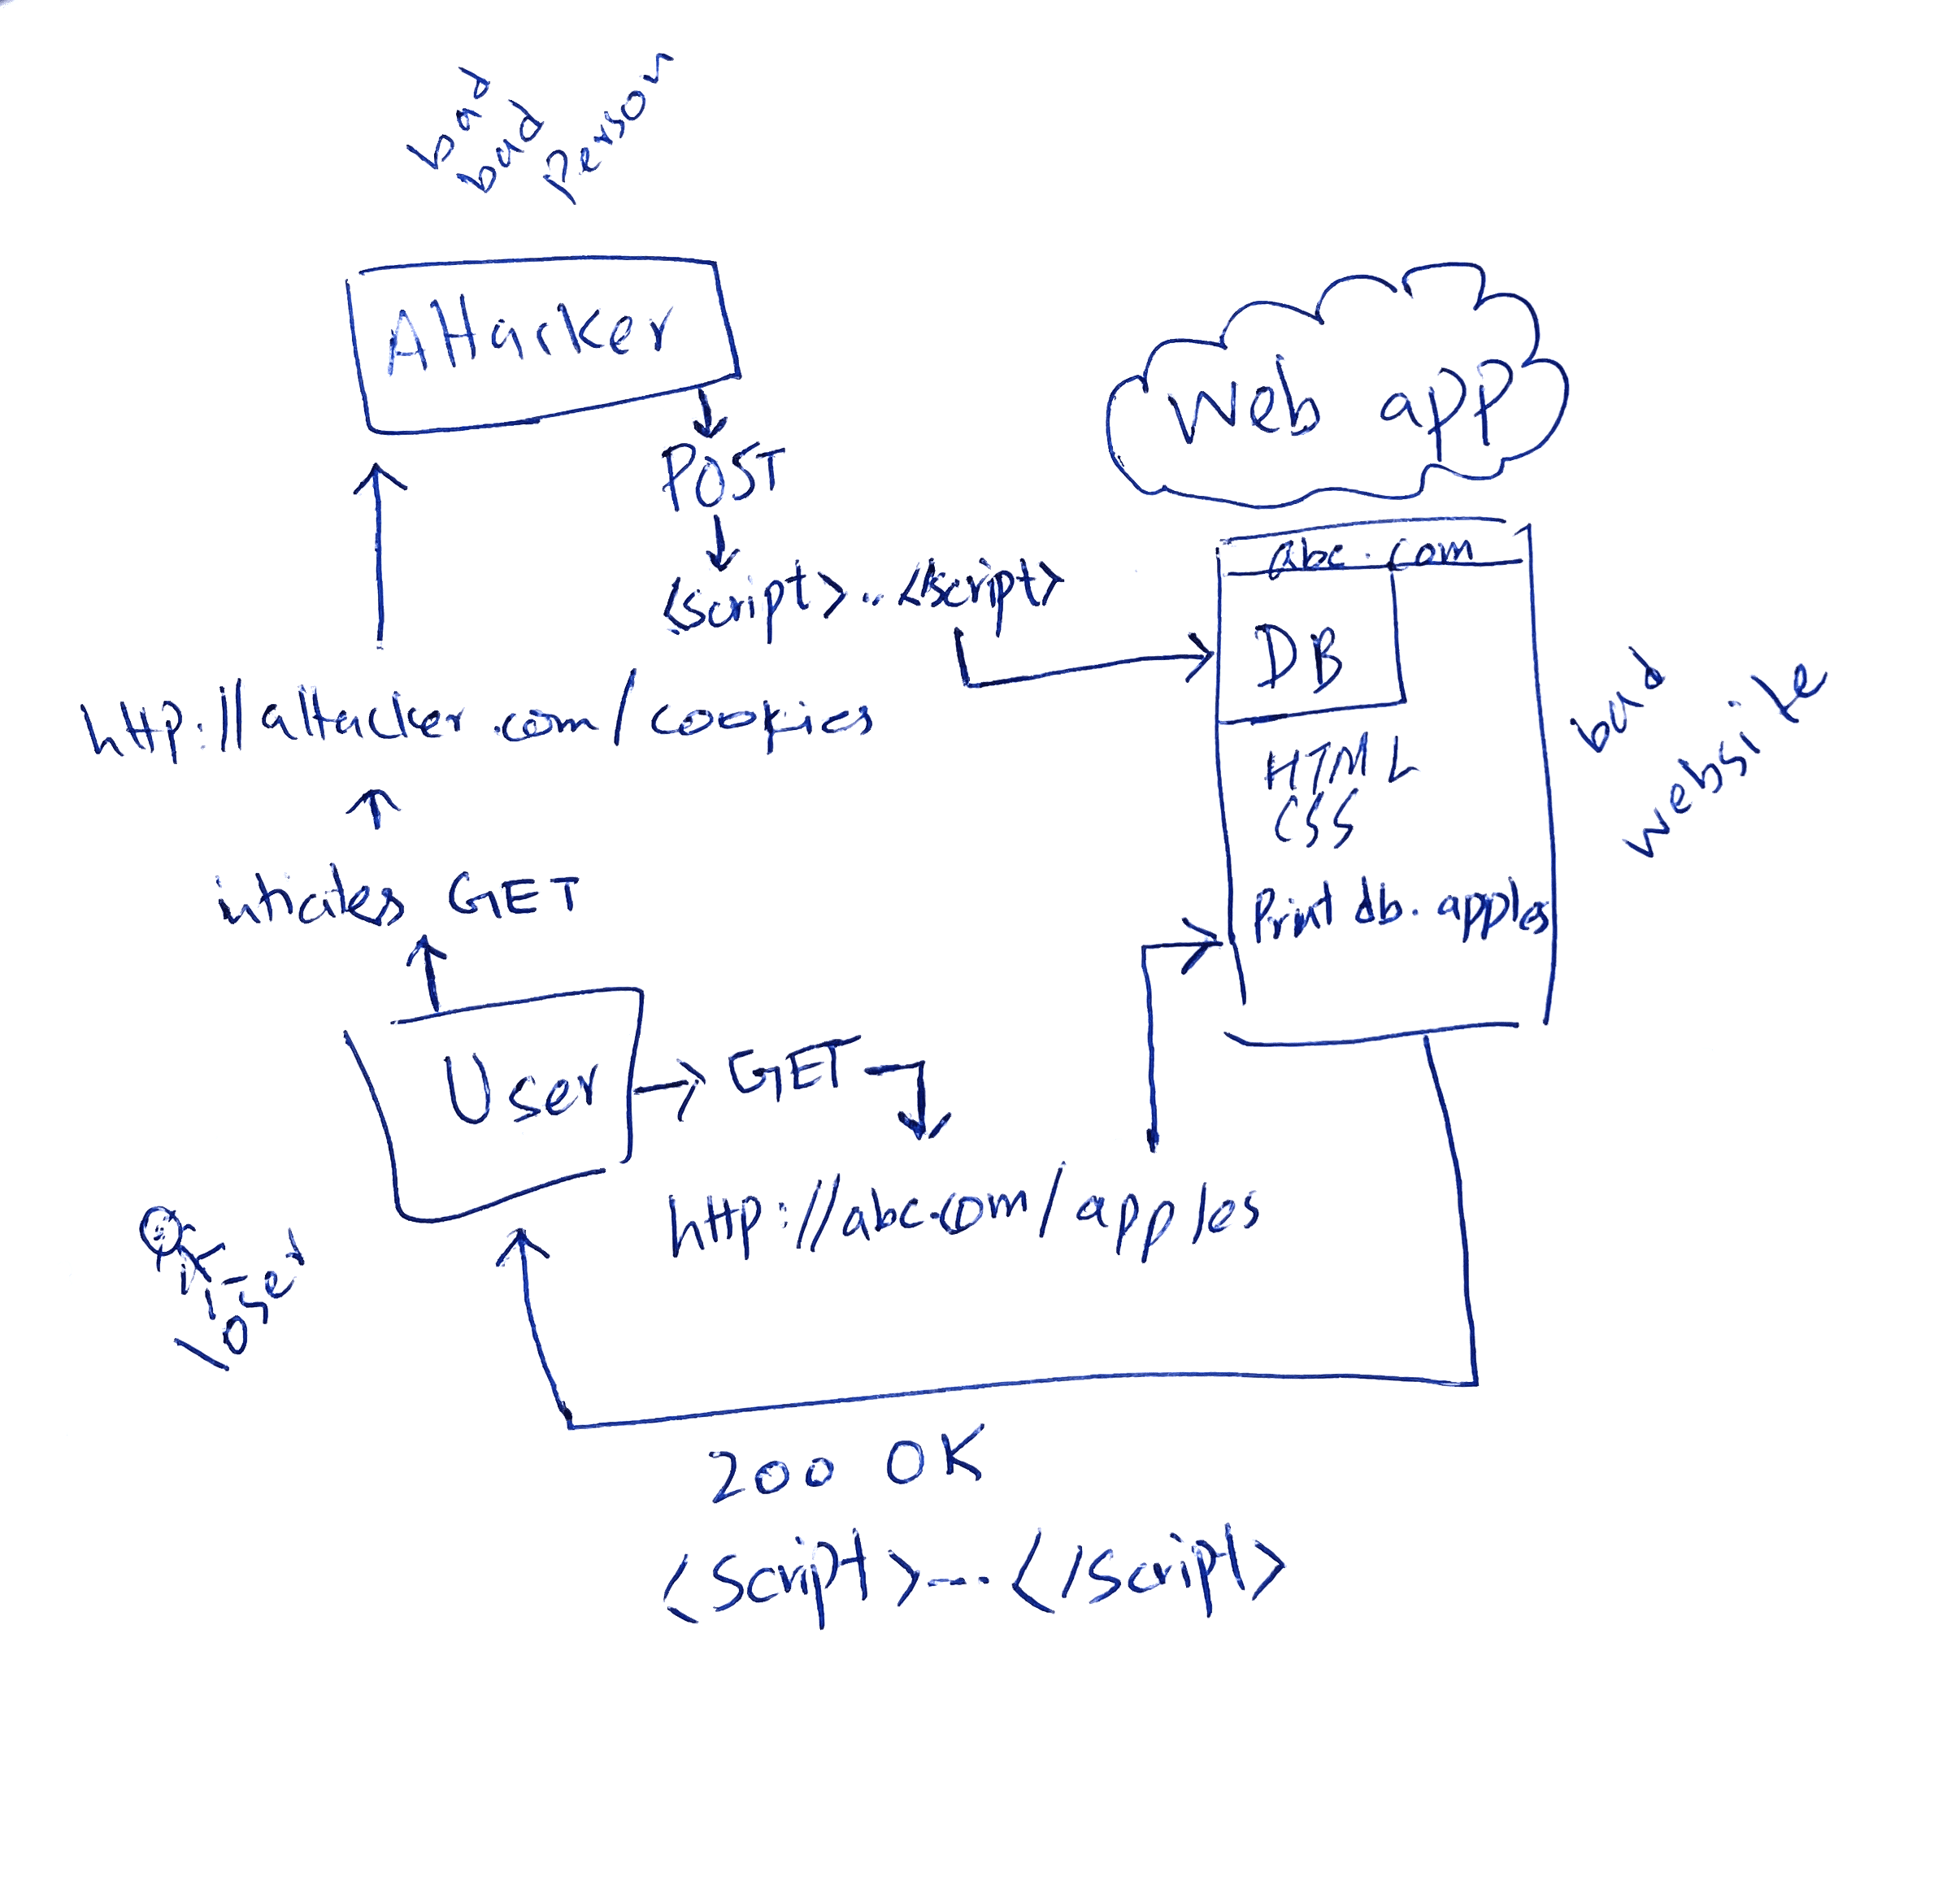 bad
bad
person
Attacker
POST
<script>..</script>
Web app
abc.com
DB
HTML
CSS
Print db.apples
bad
website
http://attacker.com/cookies
initiates GET
User
GET
http://abc.com/apples
200 OK
<script>---</script>